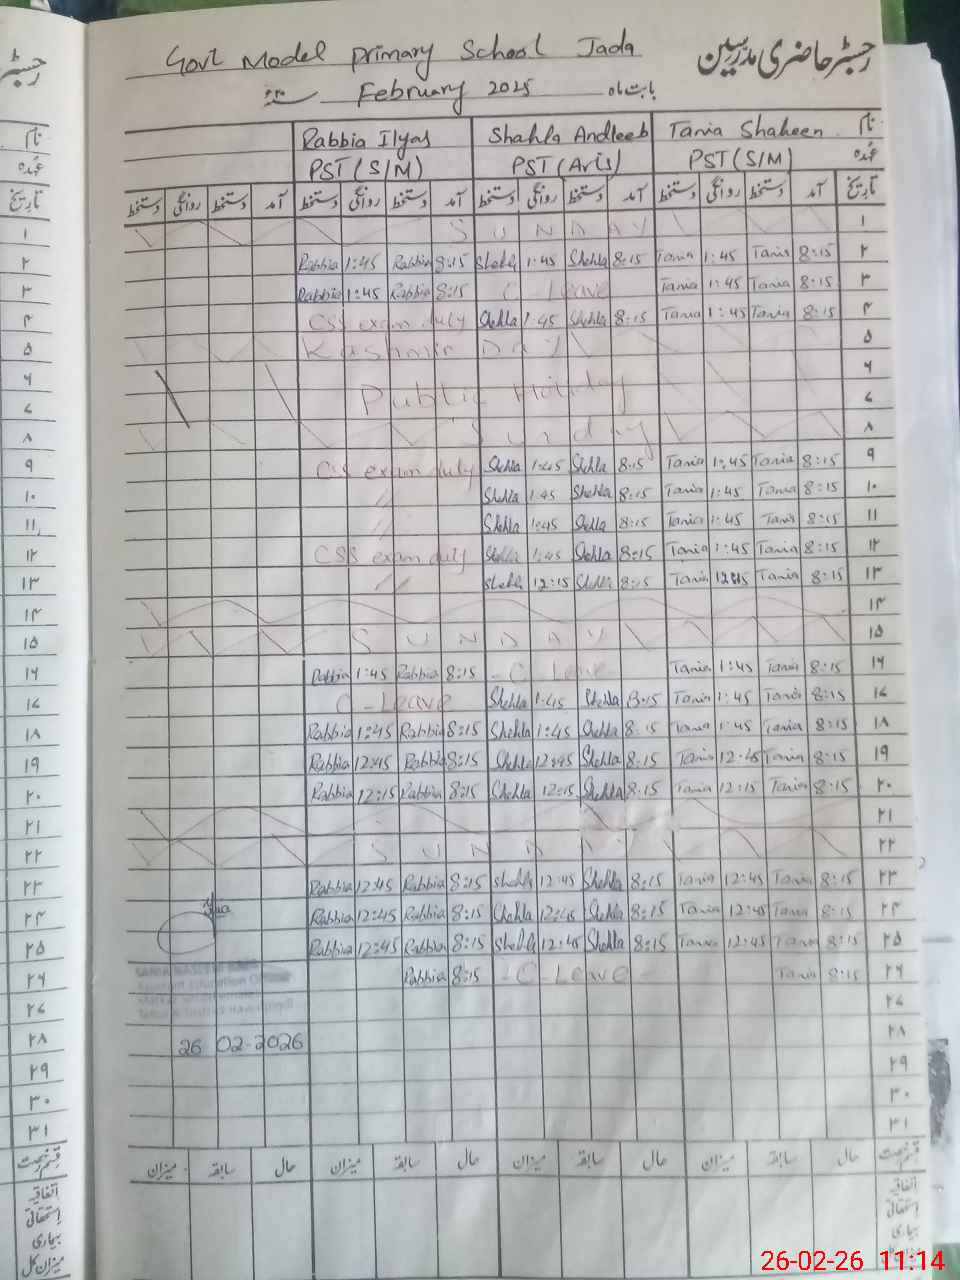 رجسٹر حاضری مدرسین
Govt Model Primary School Jada
بابت ماہ February 2025
نام Rabbia Ilyas Shahla Andleeb Tania Shaheen
عہدہ PST (S/M) PST (Aris) PST (S/M)
دستخط روانگی دستخط آمد دستخط روانگی دستخط آمد دستخط روانگی دستخط آمد دستخط روانگی دستخط آمد تاریخ
SUNDAY ۱
Rabbia 1:45 Rabbia 8:15 Shehla 1:45 Shehla 8:15 Tania 1:45 Tania 8:15 ۲
Rabbia 1:45 Rabbia 8:15 C-Leave Tania 1:45 Tania 8:15 ۳
CSS exam duty Shehla 1:45 Shehla 8:15 Tania 1:45 Tania 8:15 ۴
Kashmir DAY ۵
۶
Public Holiday ۷
Sunday ۸
CSS exam duty Shehla 1:45 Shehla 8:15 Tania 1:45 Tania 8:15 ۹
// Shehla 1:45 Shehla 8:15 Tania 1:45 Tania 8:15 ۱۰
// Shehla 1:45 Shehla 8:15 Tania 1:45 Tania 8:15 ۱۱
CSS exam duty Shehla 1:45 Shehla 8:15 Tania 1:45 Tania 8:15 ۱۲
// Shehla 12:15 Shehla 8:15 Tania 12:15 Tania 8:15 ۱۳
۱۴
SUNDAY ۱۵
Rabbia 1:45 Rabbia 8:15 - C-Leave Tania 1:45 Tania 8:15 ۱۶
C-Leave Shehla 1:45 Shehla 8:15 Tania 1:45 Tania 8:15 ۱۷
Rabbia 1:45 Rabbia 8:15 Shehla 1:45 Shehla 8:15 Tania 1:45 Tania 8:15 ۱۸
Rabbia 12:45 Rabbia 8:15 Shehla 12:45 Shehla 8:15 Tania 12:45 Tania 8:15 ۱۹
Rabbia 12:15 Rabbia 8:15 Shehla 12:15 Shehla 8:15 Tania 12:15 Tania 8:15 ۲۰
۲۱
SUNDAY ۲۲
Rabbia 12:45 Rabbia 8:15 Shehla 12:45 Shehla 8:15 Tania 12:45 Tania 8:15 ۲۳
Rabbia 12:45 Rabbia 8:15 Shehla 12:45 Shehla 8:15 Tania 12:45 Tania 8:15 ۲۴
Rabbia 12:45 Rabbia 8:15 Shehla 12:45 Shehla 8:15 Tania 12:45 Tania 8:15 ۲۵
Rabbia 8:15 - C-Leave - Tania 8:15 ۲۶
Assistant Education
۲۷
26 02-2026 ۲۸
۲۹
۳۰
۳۱
میزان سابقہ حال میزان سابقہ حال میزان سابقہ حال میزان سابقہ حال قسم رخصت
اتفاقیہ
استحقاقی
بیماری
میزان کل
26-02-26 11:14